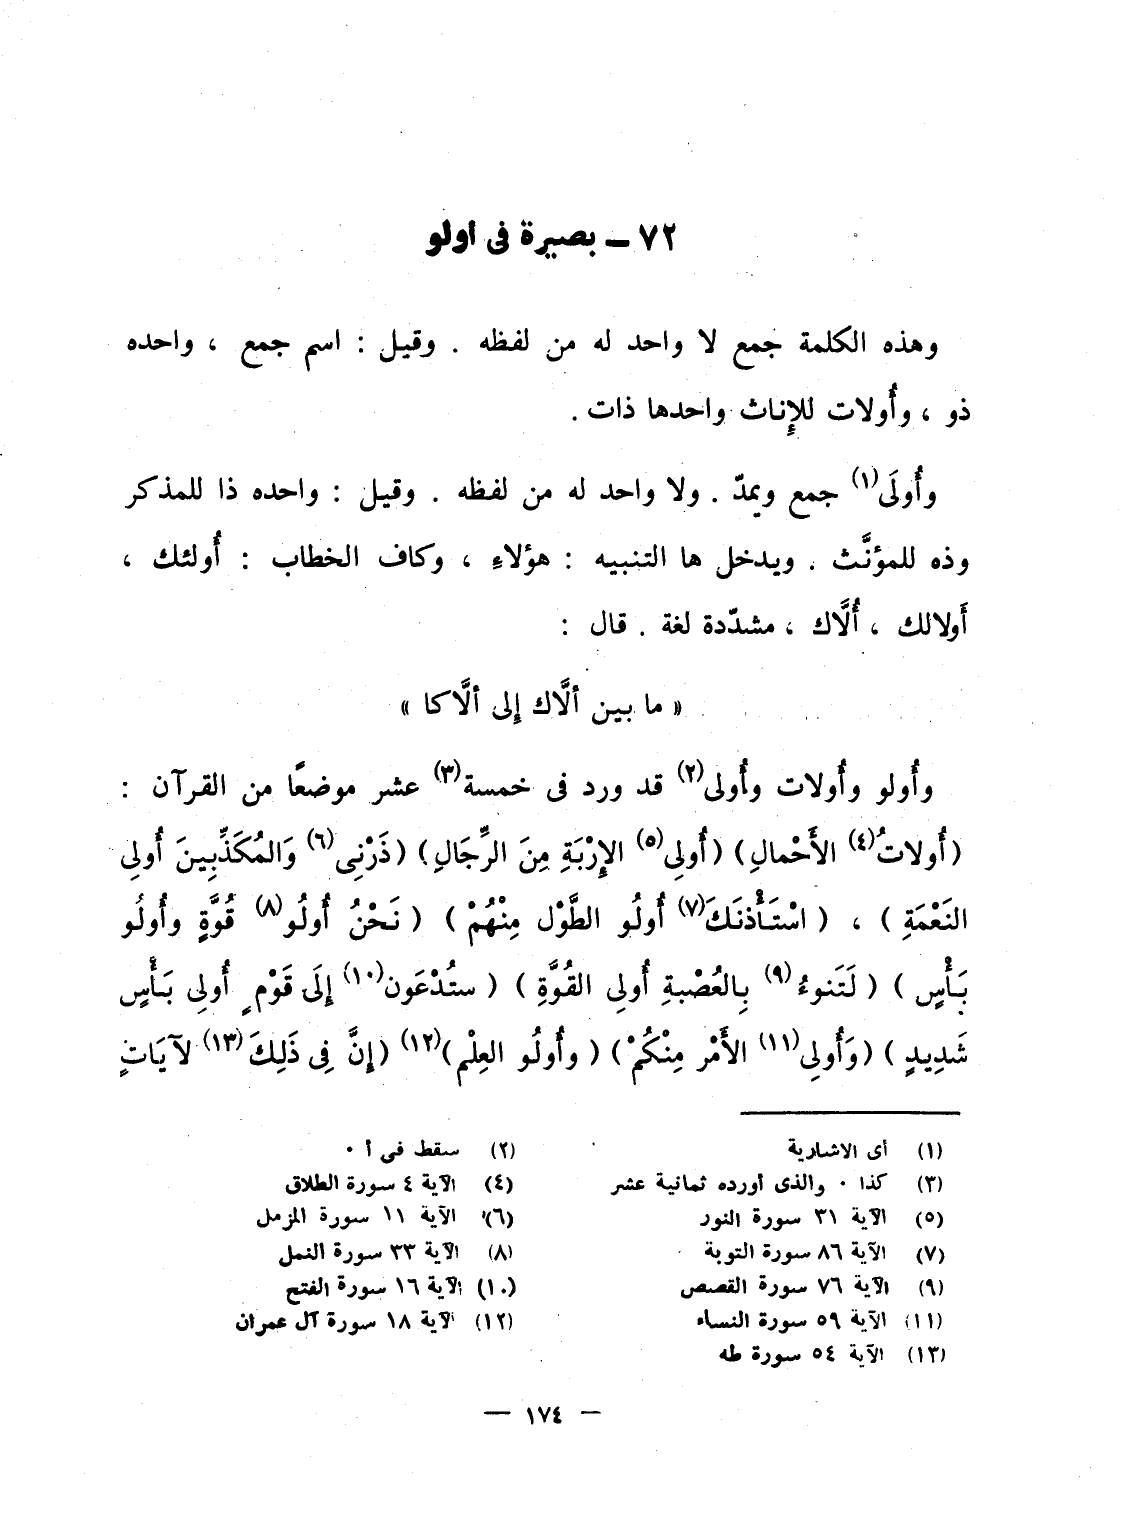 ٧٢ ــ بصيرة فى اولو
وهذه الكلمة جمع لا واحد له من لفظه . وقيل : اسم جمع ، واحده
ذو ، وأُولات للإِناث واحدها ذات .
وأُولَى(١) جمع ويمدّ . ولا واحد له من لفظه . وقيل : واحده ذا للمذكر
وذه للمؤنَّث . ويدخل ها التنبيه : هؤلاءِ ، وكاف الخطاب : أُولئك ،
أَولالك ، أُلَّاك ، مشدّدة لغة . قال :
« ما بين ألَّاك إلى ألَّاكا »
وأُولو وأُولات وأُولى(٢) قد ورد فى خمسة(٣) عشر موضعًا من القرآن :
(أُولاتُ(٤) الأَحْمالِ) (أُولِى(٥) الإِرْبَةِ مِنَ الرِّجَالِ) (ذَرْنِى(٦) وَالمُكَذِّبِينَ أُولِى
النَعْمَةِ) ، (اسْتَأْذنَكَ(٧) أُولُو الطَّوْل مِنْهُمْ) (نَحْنُ أُولُو(٨) قُوَّةٍ وأُولُو
بَأْسٍ) (لَتَنوءُ(٩) بِالعُصْبةِ أُولِى القُوَّةِ) (ستُدْعَون(١٠) إِلَى قَوْمٍ أُولِى بَأْسٍ
شَدِيدٍ) (وَأُولِى(١١) الأَمْر مِنْكُمْ) (وأُولُو العِلْم)(١٢) (إِنَّ فِى ذَلِكَ(١٣) لآيَاتٍ
(١) أى الاشارية
(٢) سقط فى أ ٠
(٣) كذا ٠ والذى أورده ثمانية عشر
(٤) الآية ٤ سورة الطلاق
(٥) الآية ٣١ سورة النور
(٦) الآية ١١ سورة المزمل
(٧) الآية ٨٦ سورة التوبة
(٨) الآية ٣٣ سورة النمل
(٩) الآية ٧٦ سورة القصص
(١٠) الآية ١٦ سورة الفتح
(١١) الآية ٥٩ سورة النساء
(١٢) الآية ١٨ سورة آل عمران
(١٣) الآية ٥٤ سورة طه
— ١٧٤ —